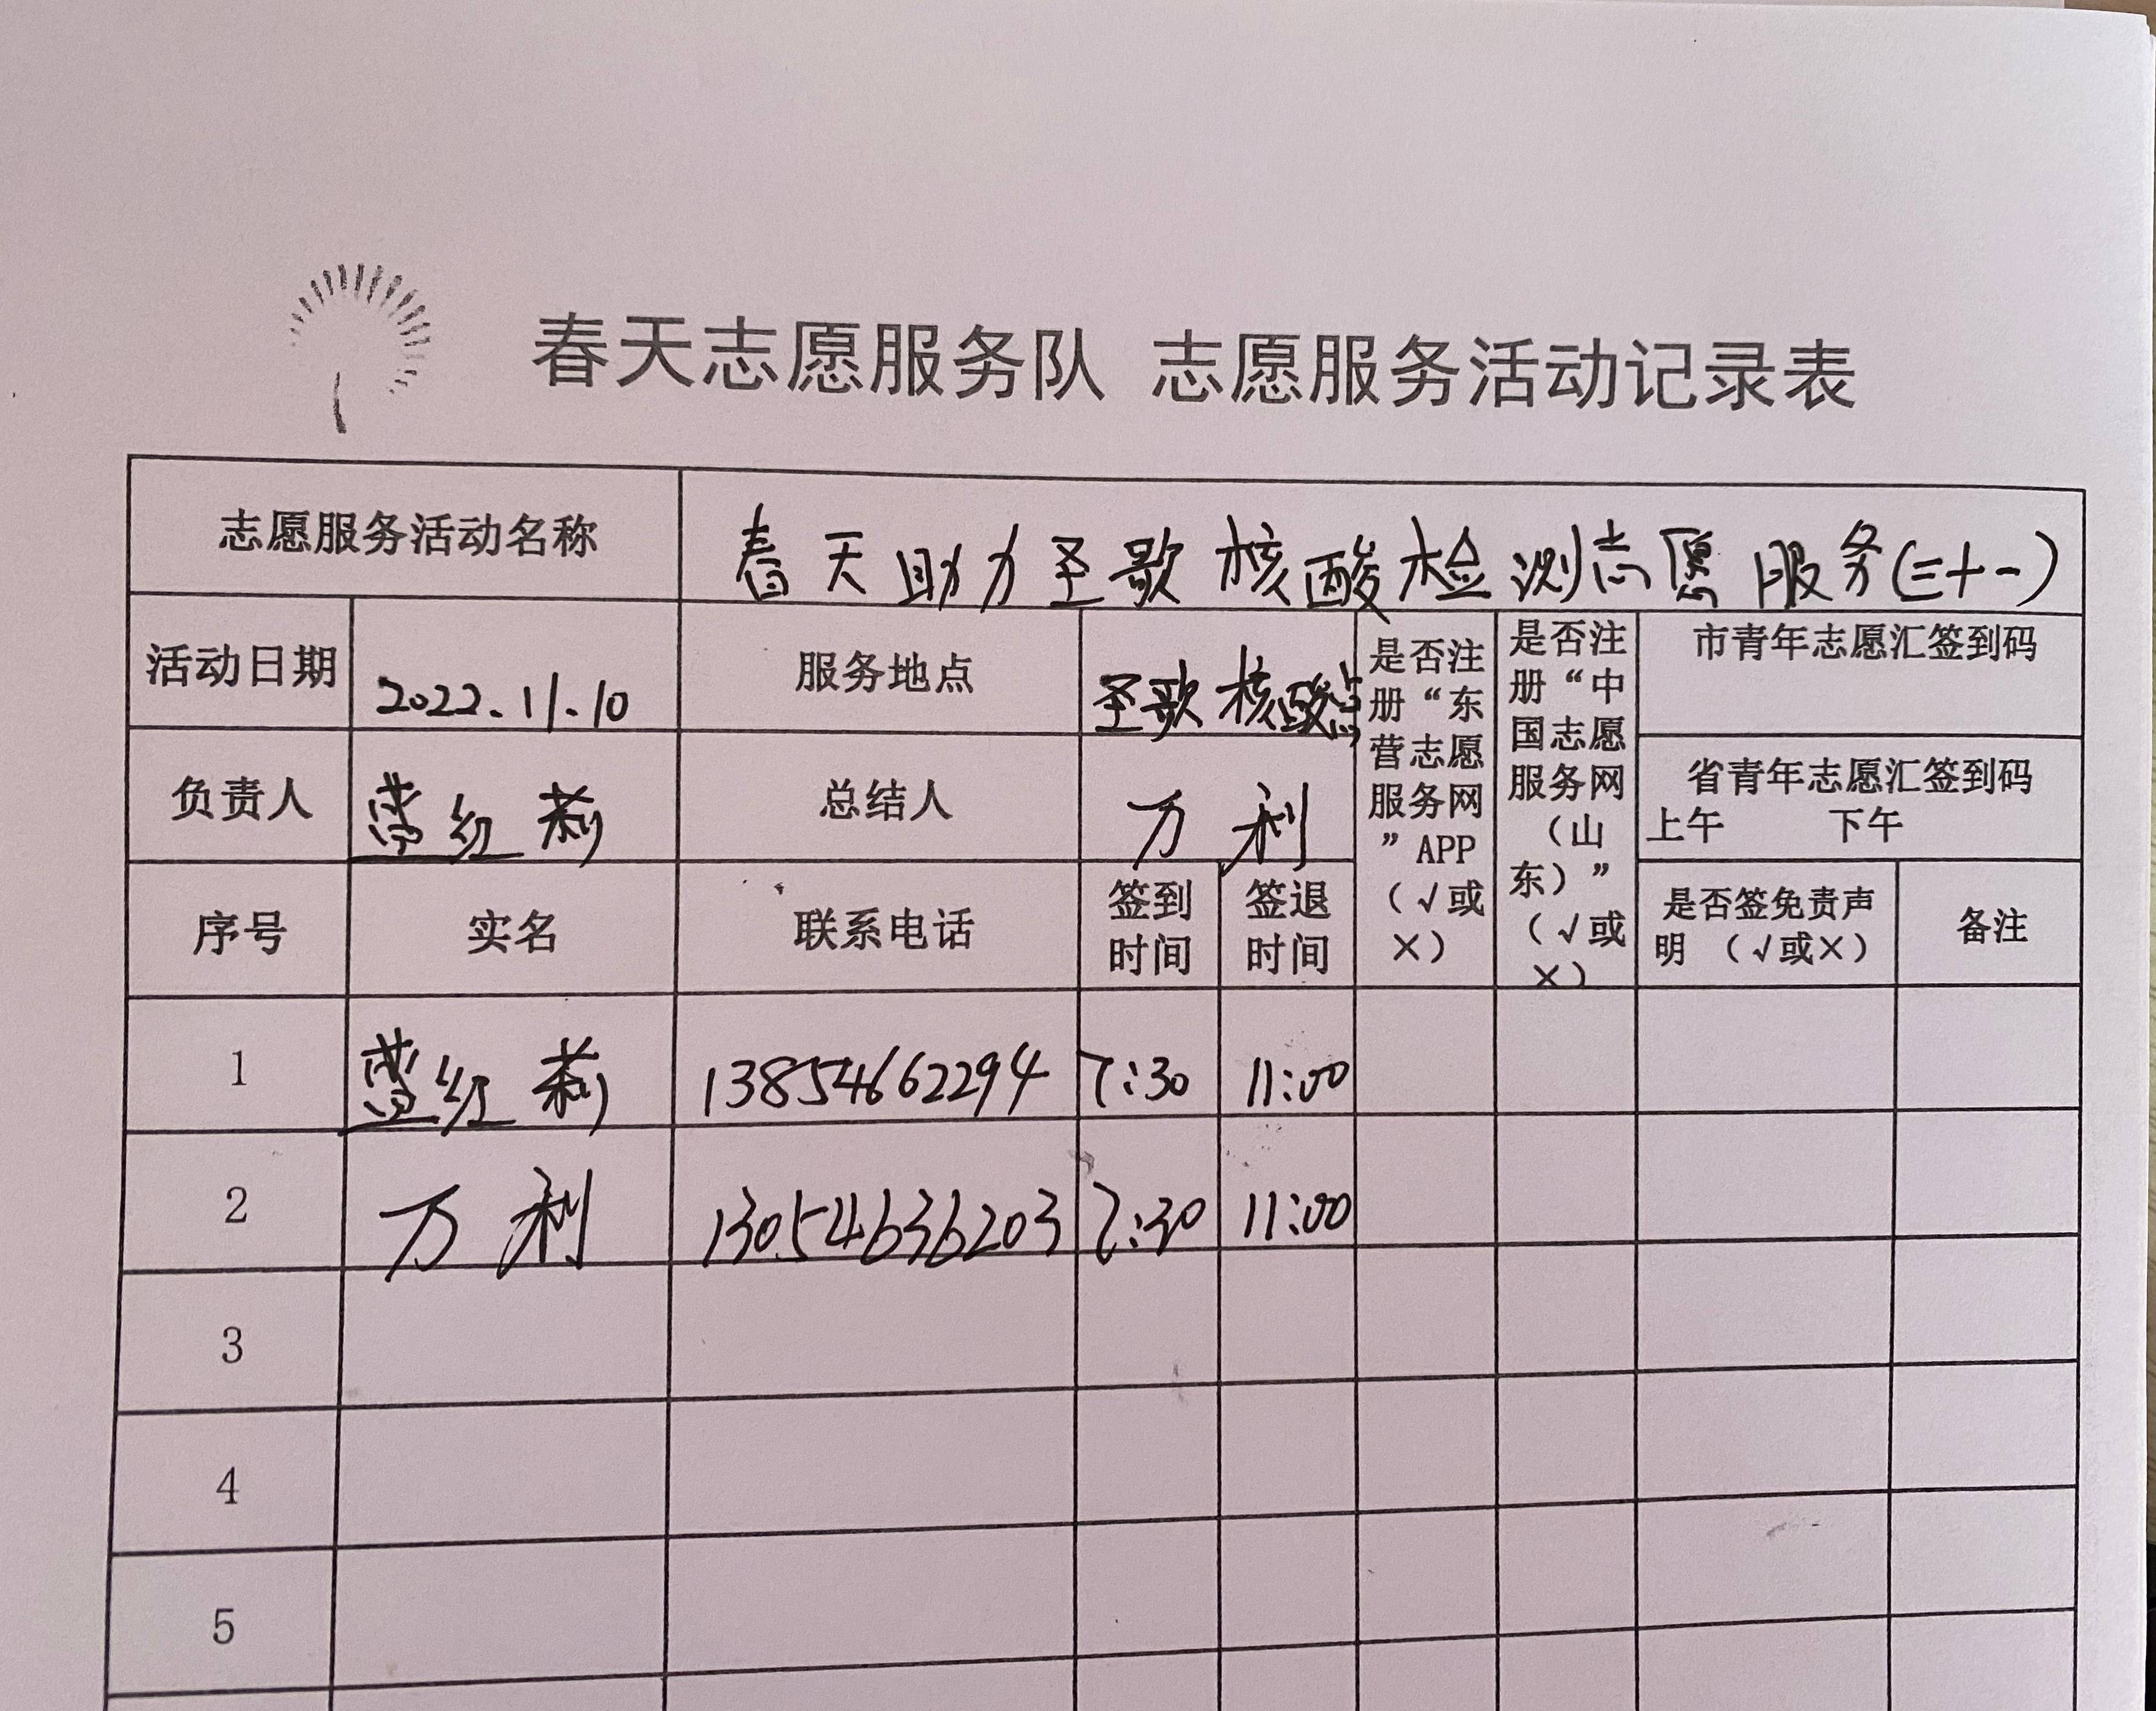 春天志愿服务队 志愿服务活动记录表
志愿服务活动名称 春天助力圣歌核酸检测志愿服务(三十一)
活动日期 2022.11.10 服务地点 圣歌核酸点
是否注册“东营志愿服务网”APP（√或×）
是否注册“中国志愿服务网（山东）”（√或×）
市青年志愿汇签到码
负责人 红莉 总结人 万利
省青年志愿汇签到码
上午 下午
序号 实名 联系电话 签到时间 签退时间 是否签免责声明（√或×） 备注
1 红莉 13854662294 7:30 11:00
2 万利 13054636203 7:30 11:00
3
4
5